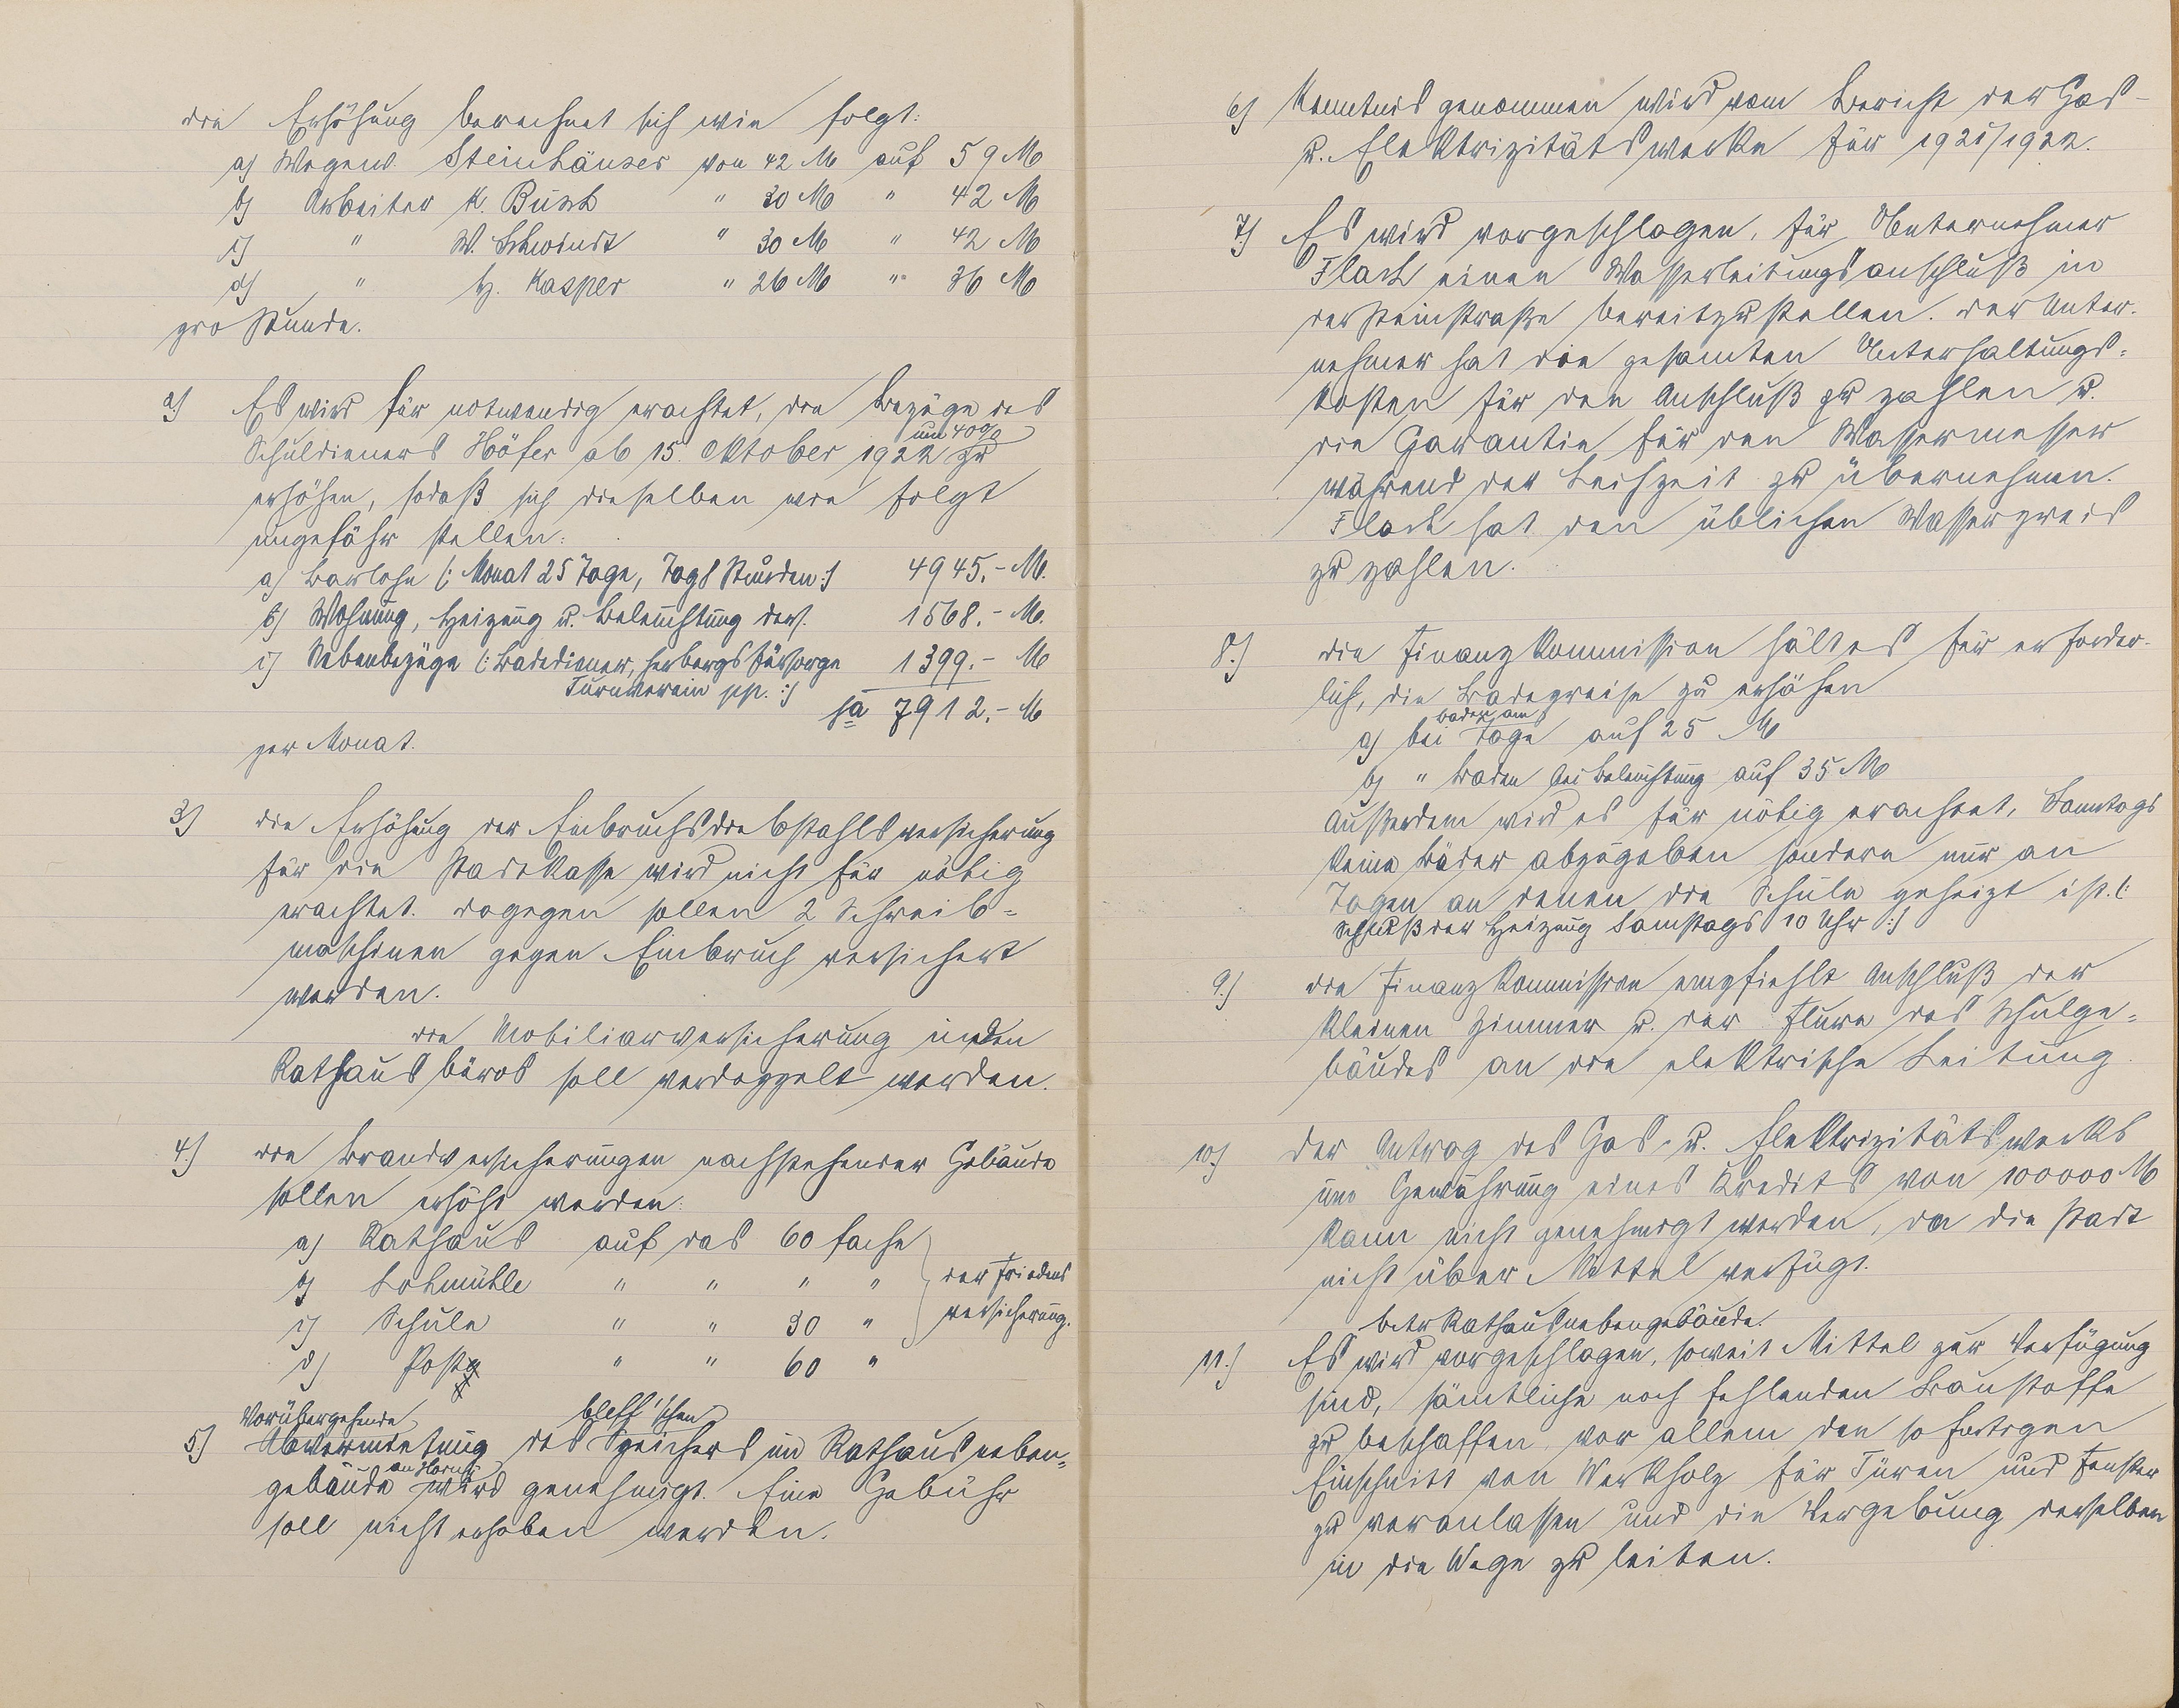 die Erhöhung berechnet sich wie folgt:
a) Wegew. Steinhäuser von 42 M auf 59 M
b) Arbeiter K. Busch " 30 M " 42 M
c) " W. Schwindt " 30 M " 42 M
d) " H. Kasper " 26 M " 36 M
pro Stunde.
2) Es wird für notwendig erachtet, die Bezüge des
um 40%
Schuldieners Höfer ab 15. Oktober 1922 zu
erhöhen, sodaß sich dieselben wie folgt
ungefähr stellen:
a) Barlohn (: Monat 25 Tage, Tag 8 Stunden :) 4945.- M.
b) Wohnung, Heizung u. Beleuchtung ders. 1568.- M.
c) Nebenbezüge (: Badediener, Herbergsfürsorge 1399.- M
Turnverein pp. :)
sa 7912.- M
per Monat.
3) die Erhöhung der Einbruchsdiebstahlsversicherung
für die Stadtkasse wird nicht für nötig
erachtet. dagegen sollen 2 Schreib=
maschinen gegen Einbruch versichert
werden.
die Mobiliarversicherung in den
Rathausbüros soll verdoppelt werden.
4) die Brandversicherungen nachstehender Gebäude
sollen erhöht werden:
a) Rathaus auf das 60 fache
b) Lohmühle " " " " der Friedens
c) Schule " " 30 " versicherung.
d) Post " " 60 "
Vorübergehende bleff'schen
5.) Abvermietung des Speichers im Rathausneben=
an Hornig
gebäude wird genehmigt. Eine Gebühr
soll nicht erhoben werden.
6) Kenntnis genommen wird vom Bericht der Gas-
u. Elektrizitätswerke für 1921/1922.
7.) Es wird vorgeschlagen, für Unternehmer
Flach einen Wasserleitungsanschluß in
der Steinstraße bereitzustellen. der Unter-
nehmer hat die gesamten Unterhaltungs=
kosten für den Anschluß zu zahlen u.
die Garantie für den Wassermesser
während der Leihzeit zu übernehmen.
Flach hat den üblichen Wasserpreis
zu zahlen.
8.) die Finanzkommission hält es für erforder-
lich, die Badepreise zu erhöhen
Baden am
a) bei Tage auf 25 M
b) " Baden bei Beleuchtung auf 35 M
Außerdem wird es für nötig erachtet, Sonntags
keine Bäder abzugeben sondern nur an
Tagen an denen die Schule geheizt ist. (:
Schluß der Heizung Samstags 10 Uhr :)
9.) die Finanzkommission empfiehlt Anschluß der
kleinen Zimmer u. der Flure des Schulge=
bäudes an die elektrische Leitung.
10.) Der Antrag des Gas- u. Elektrizitätswerks
um Gewährung eines Kredits von 100000 M
kann nicht genehmigt werden, da die Stadt
nicht über Mittel verfügt.
betr. Rathausnebengebäude.
11.) Es wird vorgeschlagen, soweit Mittel zur Verfügung
sind, sämtliche noch fehlenden Baustoffe
zu beschaffen vor allem den sofortigen
Einschnitt von Werkholz für Türen und Fenster
zu veranlassen und die Vergebung derselben
in die Wege zu leiten.